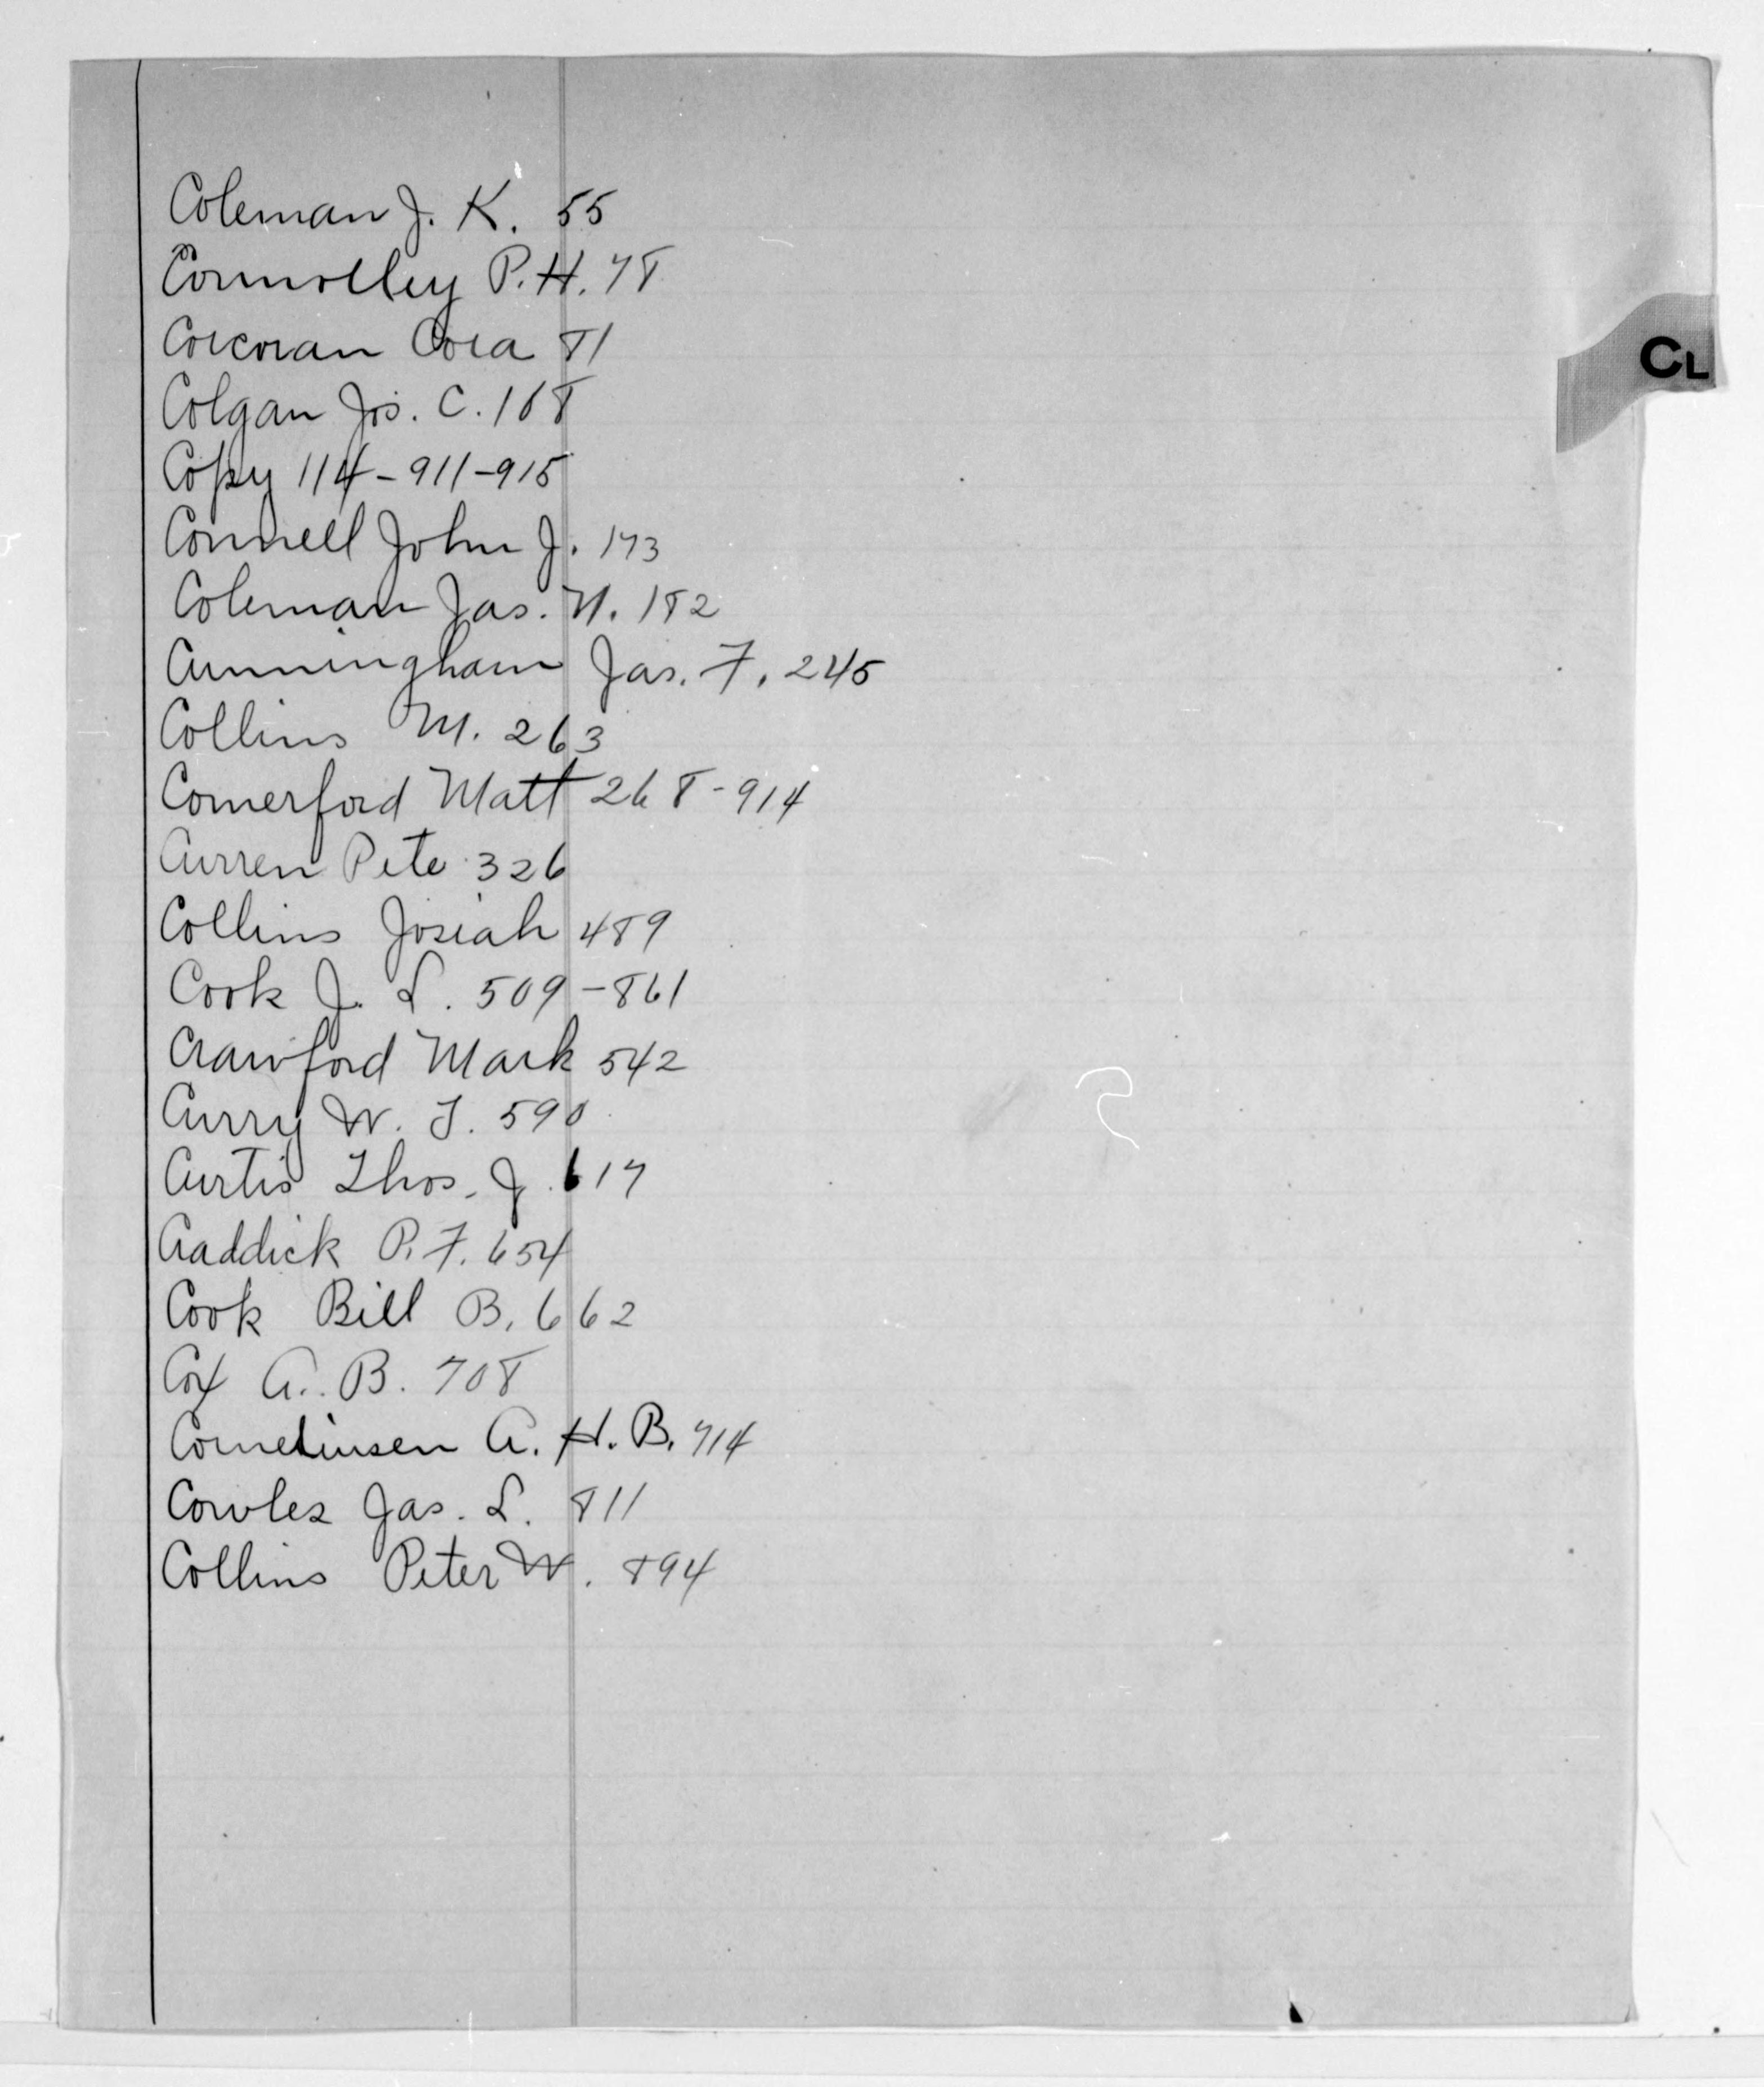 Coleman J. K. 55
Connolley P. H. 78
CL
Corcoran Cora 81
Colgan Jos. C. 108
Copy 114-911-915
Connell John J. 173
Coleman Jas. N. 182
Cunningham Jas. F. 245
Collins M. 263
Comerford Matt 268-914
Curren Pete 326
Collins Josiah 489
Cook J. L. 509-861
Crawford Mark 542
Curry W. J. 590
Curtis Thos. J. 617
Craddick P. F. 654
Cook Bill B. 662
Cox A. B. 708
Corneliusen A. H. B. 714
Cowles Jas. L. 811
Collins Peter W. 894